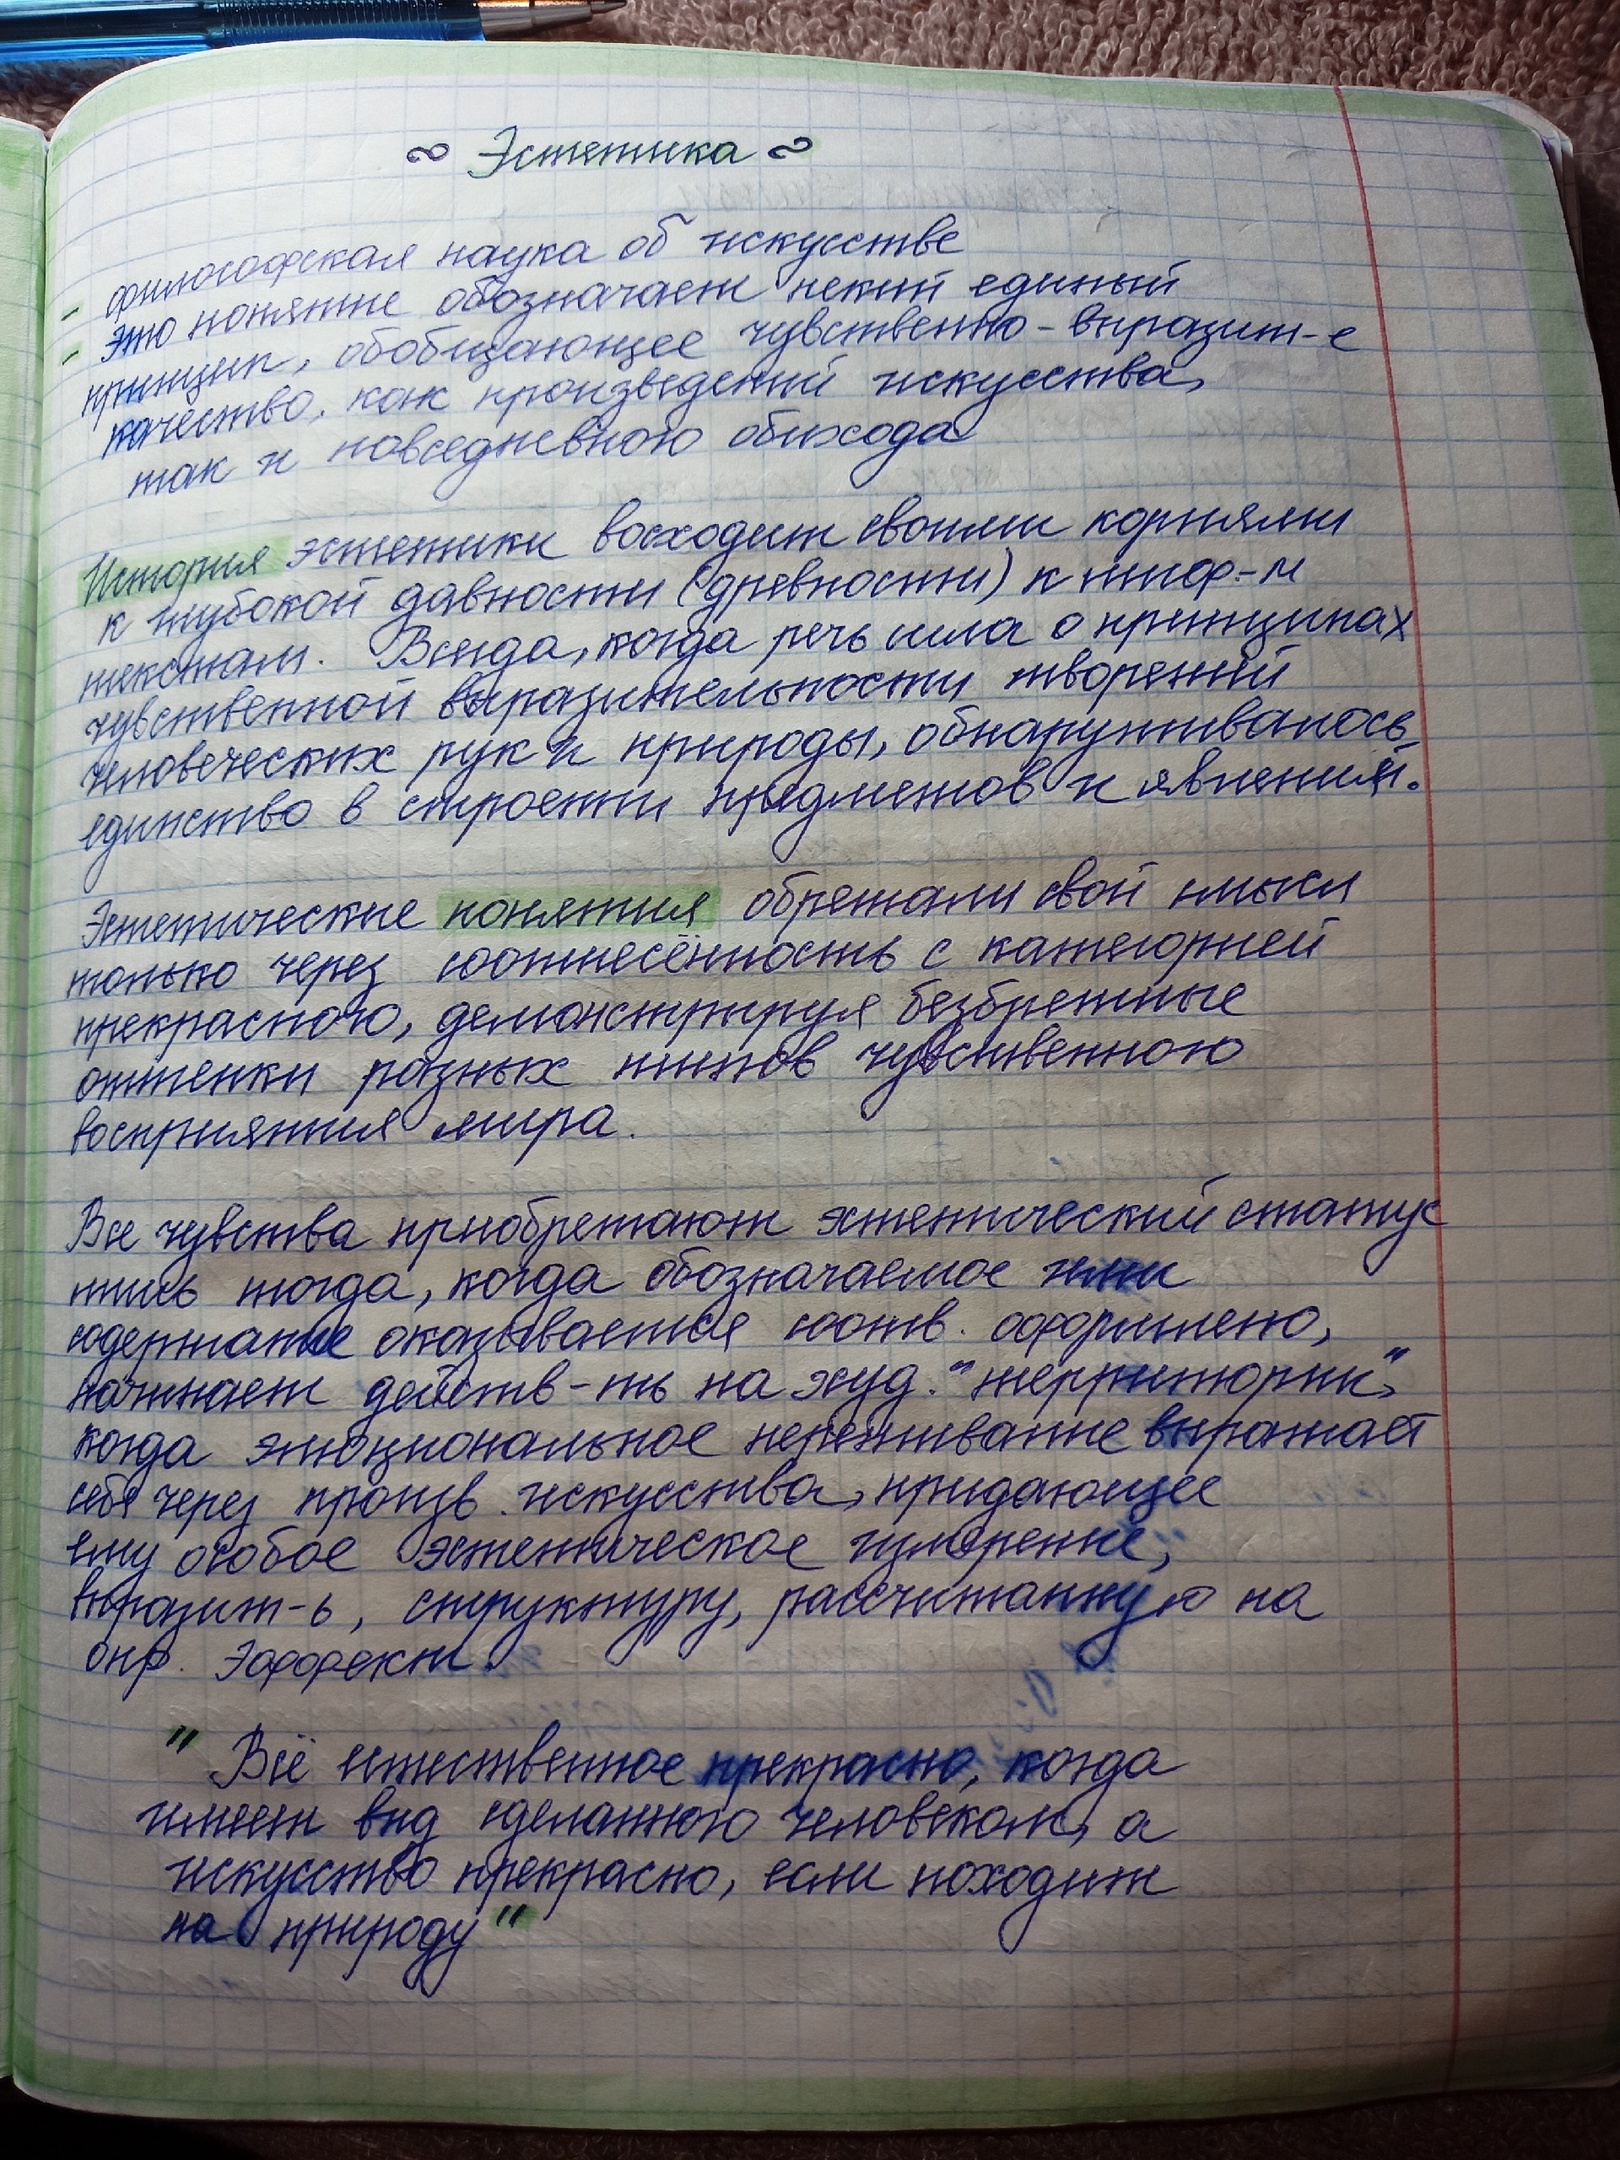 ~ Эстетика ~
- философская наука об искусстве
- это понятие обозначает некий единый
принцип, обобщающее чувственно-выразит-е
качество, как произведений искусства,
так и повседневного обихода
История эстетики восходит своими корнями
к глубокой давности (древности) к миф-м
текстам. Всегда, когда речь шла о принципах
чувственной выразительности творений
человеческих рук и природы, обнаруживалось
единство в строении предметов и явлений.
Эстетические понятия обретали свой смысл
только через соотнесённость с категорией
прекрасного, демонстрируя безбрежные
оттенки разных типов чувственного
восприятия мира.
Все чувства приобретают эстетический статус
лишь тогда, когда обозначаемое ими
содержание оказывается соотв. оформлено,
начинает действ-ть на худ. "территории",
когда эмоциональное переживание выражает
себя через произв. искусства, придающее
ему особое эстетическое измерение,
выразит-ь, структуру, рассчитанную на
опр. эффект.
"Всё естественное прекрасно, когда
имеет вид сделанного человеком, а
искусство прекрасно, если походит
на природу"